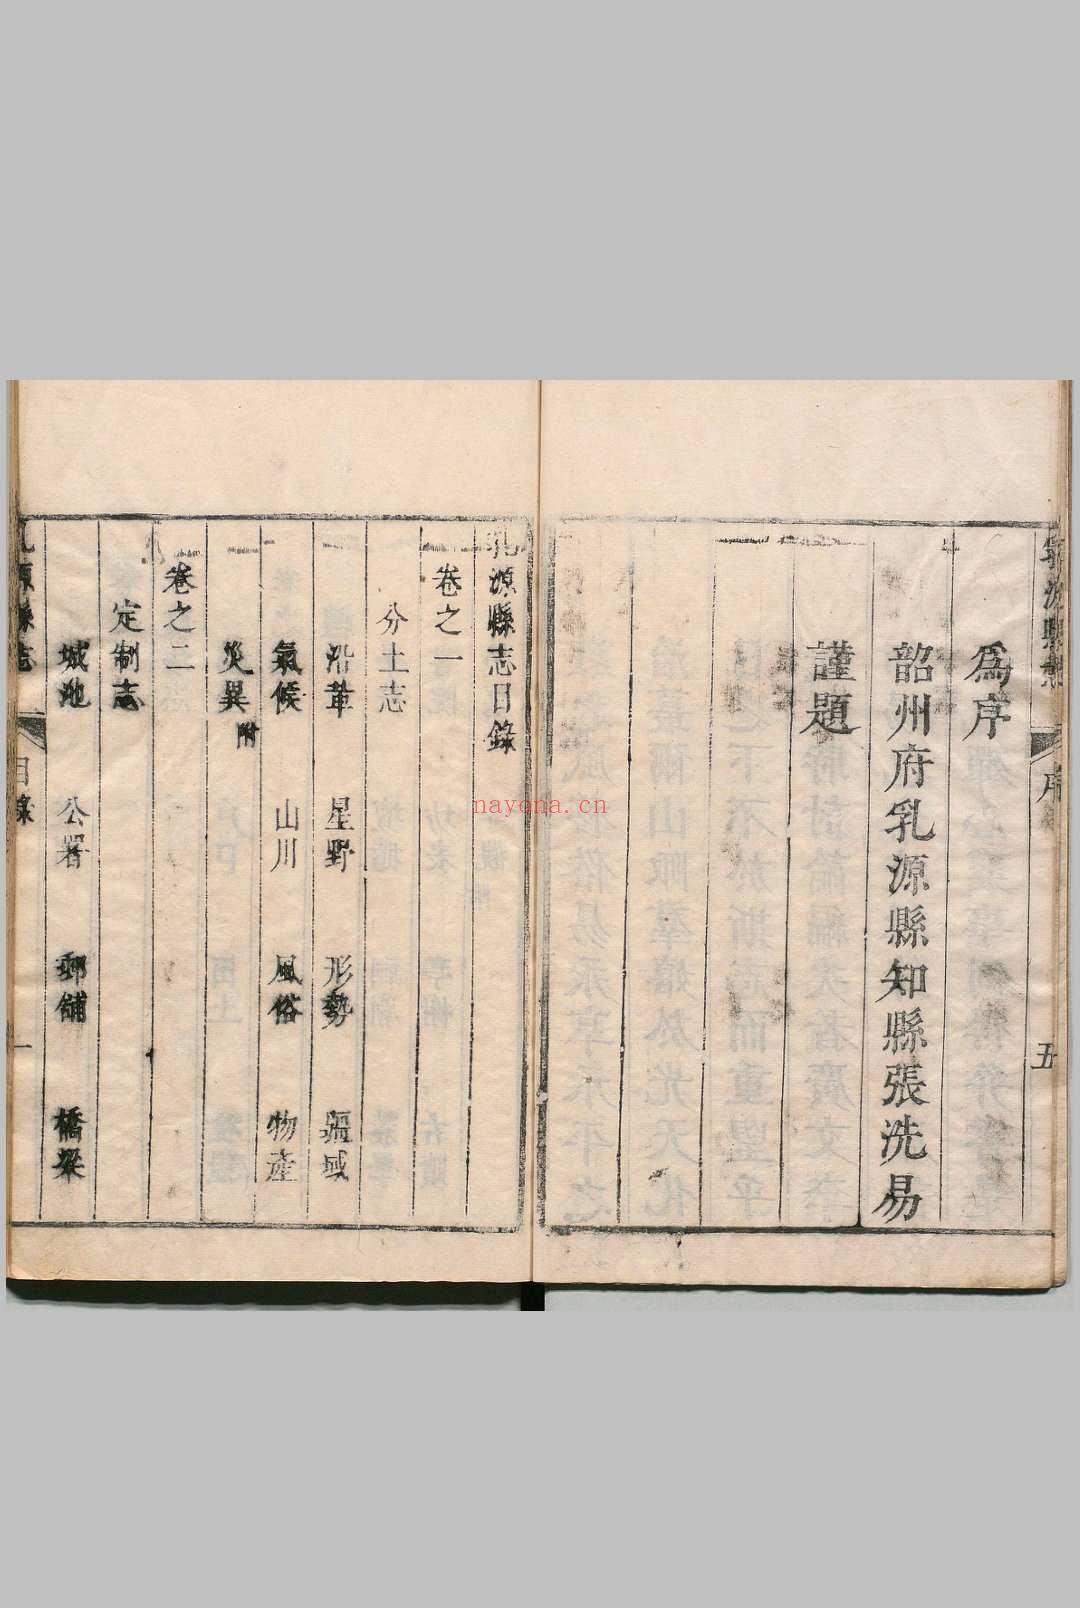 爲序
韶州府乳源縣知縣張洗易
謹題
序
五
乳源縣志目錄
卷之一
分土志
沿革 星野 形勢 疆域
氣候 山川 風俗 物產
災異附
卷之二
定制志
城池 公署 郵舖 橋梁
源縣志 目錄 一
nayona.cn